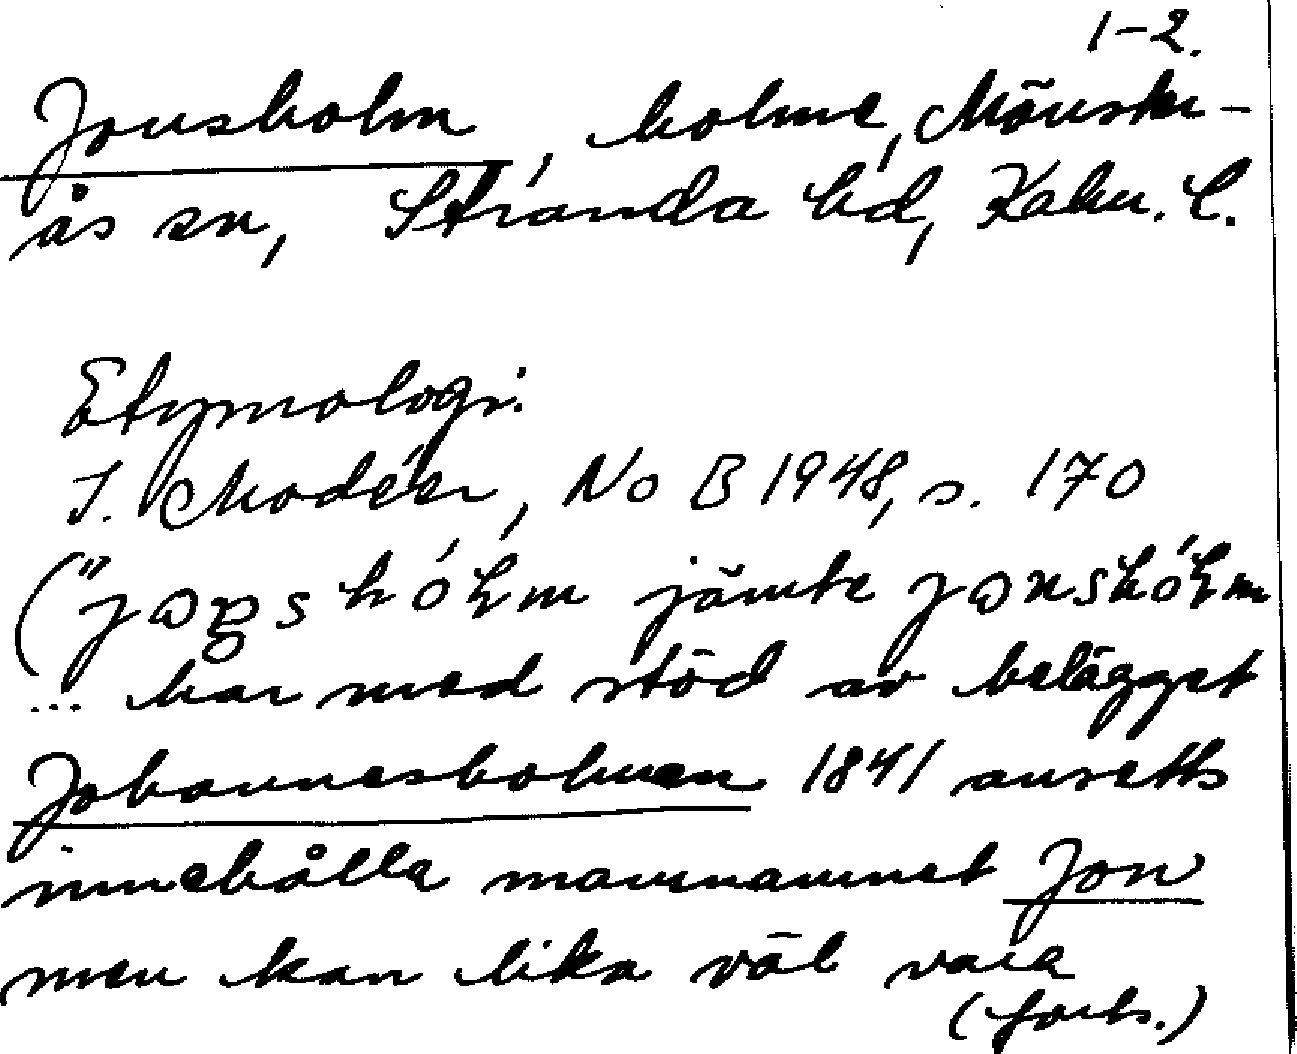 1-2.
Jonsholm, holme, Mönster-
ås sn, Stranda hd, Kalm. l.
Etymologi:
I. Modéer, NoB 1948, s. 170
("jamte
... har med stöd av belägget
Johannesholmen 1841 ansetts
innehålla mansnamnet Jon
men kan lika väl vara
(forts.)